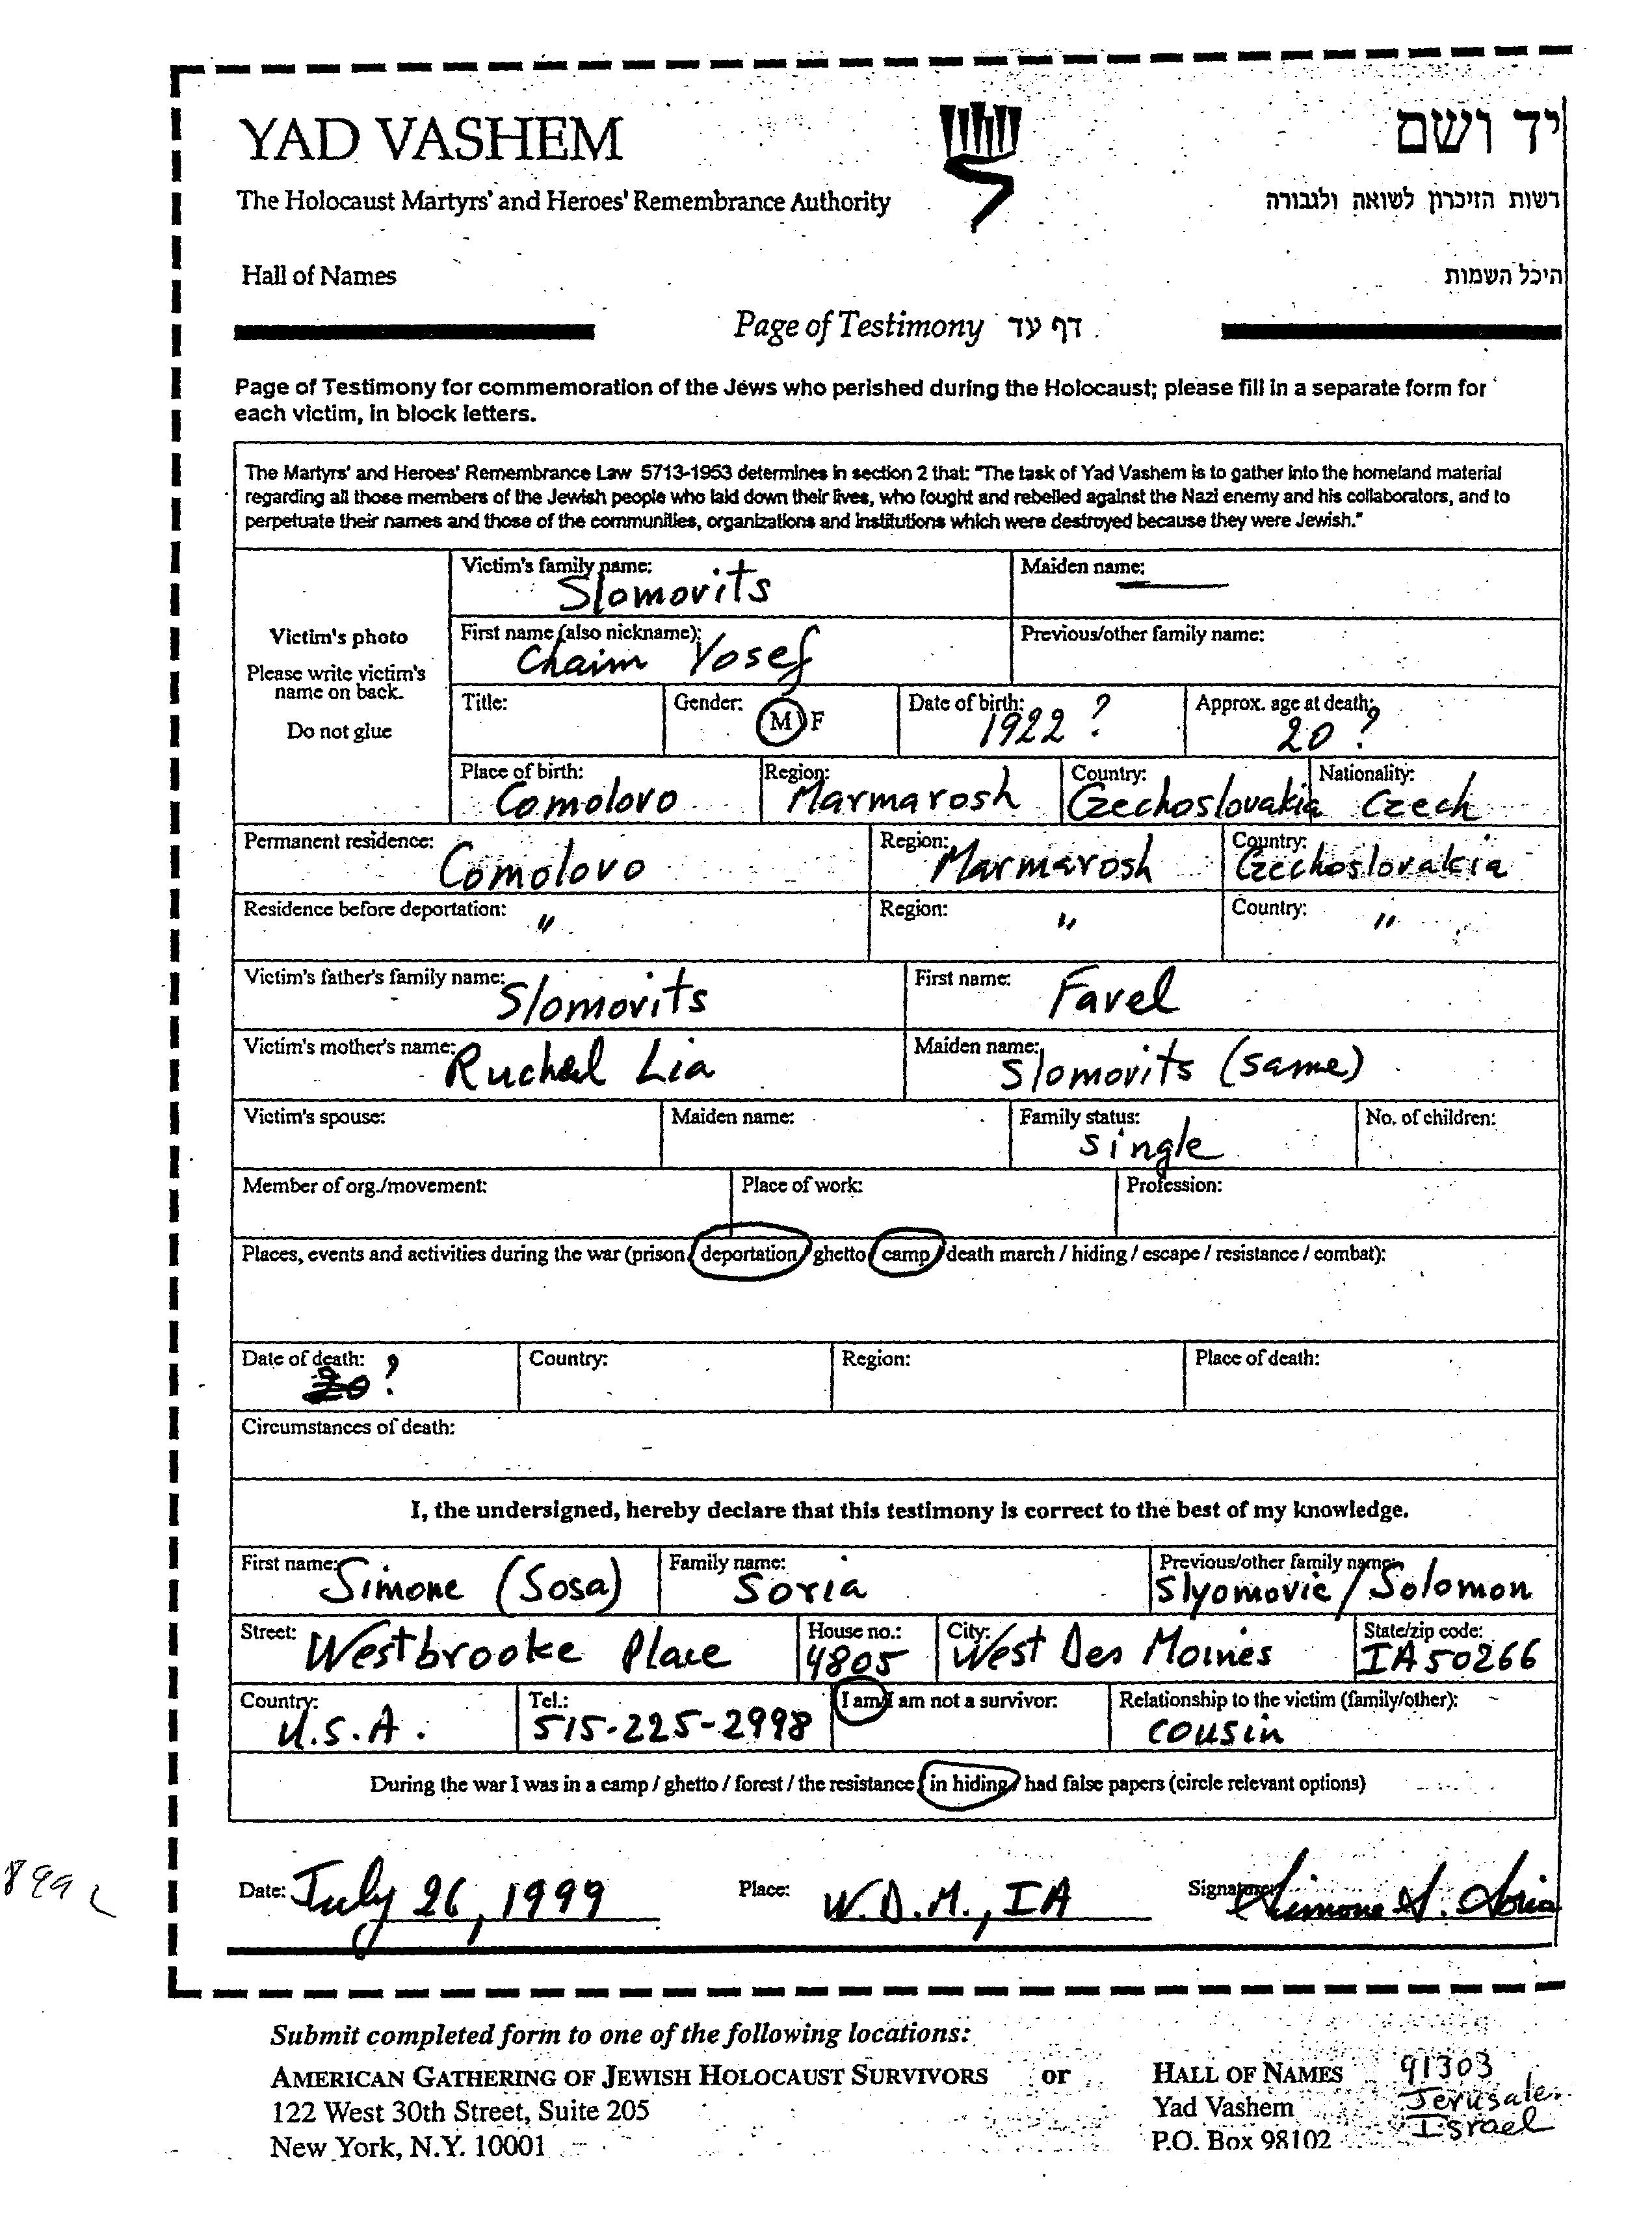 YAD VASHEM
יד ושם
The Holocaust Martyrs' and Heroes' Remembrance Authority
רשות הזיכרון לשואה ולגבורה
Hall of Names
היכל השמות
Page of Testimony דף עד
Page of Testimony for commemoration of the Jews who perished during the Holocaust; please fill in a separate form for
each victim, in block letters.
The Martyrs' and Heroes' Remembrance Law 5713-1953 determines in section 2 that: "The task of Yad Vashem is to gather into the homeland material
regarding all those members of the Jewish people who laid down their lives, who fought and rebelled against the Nazi enemy and his collaborators, and to
perpetuate their names and those of the communities, organizations and institutions which were destroyed because they were Jewish."
Victim's photo
Please write victim's
name on back.
Do not glue
Victim's family name: Slomovits
Maiden name: —
First name (also nickname): Chaim Yosef
Previous/other family name:
Title:
Gender: M F
Date of birth: 1922 ?
Approx. age at death: 20 ?
Place of birth: Comolovo
Region: Marmarosh
Country: Czechoslovakia
Nationality: Czech
Permanent residence: Comolovo
Region: Marmarosh
Country: Czechoslovakia
Residence before deportation: "
Region: "
Country: "
Victim's father's family name: Slomovits
First name: Favel
Victim's mother's name: Ruchel Lia
Maiden name: Slomovits (same)
Victim's spouse:
Maiden name:
Family status: single
No. of children:
Member of org./movement:
Place of work:
Profession:
Places, events and activities during the war (prison / deportation / ghetto / camp / death march / hiding / escape / resistance / combat):
Date of death: ?
Country:
Region:
Place of death:
Circumstances of death:
I, the undersigned, hereby declare that this testimony is correct to the best of my knowledge.
First name: Simone (Sosa)
Family name: Soria
Previous/other family name: Slyomovic / Solomon
Street: Westbrooke Place
House no.: 4805
City: West Des Moines
State/zip code: IA 50266
Country: U.S.A.
Tel.: 515-225-2998
I am / I am not a survivor:
Relationship to the victim (family/other): cousin
During the war I was in a camp / ghetto / forest / the resistance / in hiding / had false papers (circle relevant options)
Date: July 26, 1999
Place: W.D.M., IA
Signature: Simone S. Soria
Submit completed form to one of the following locations:
AMERICAN GATHERING OF JEWISH HOLOCAUST SURVIVORS
122 West 30th Street, Suite 205
New York, N.Y. 10001
or
HALL OF NAMES
Yad Vashem
P.O. Box 98102
91303
Israel